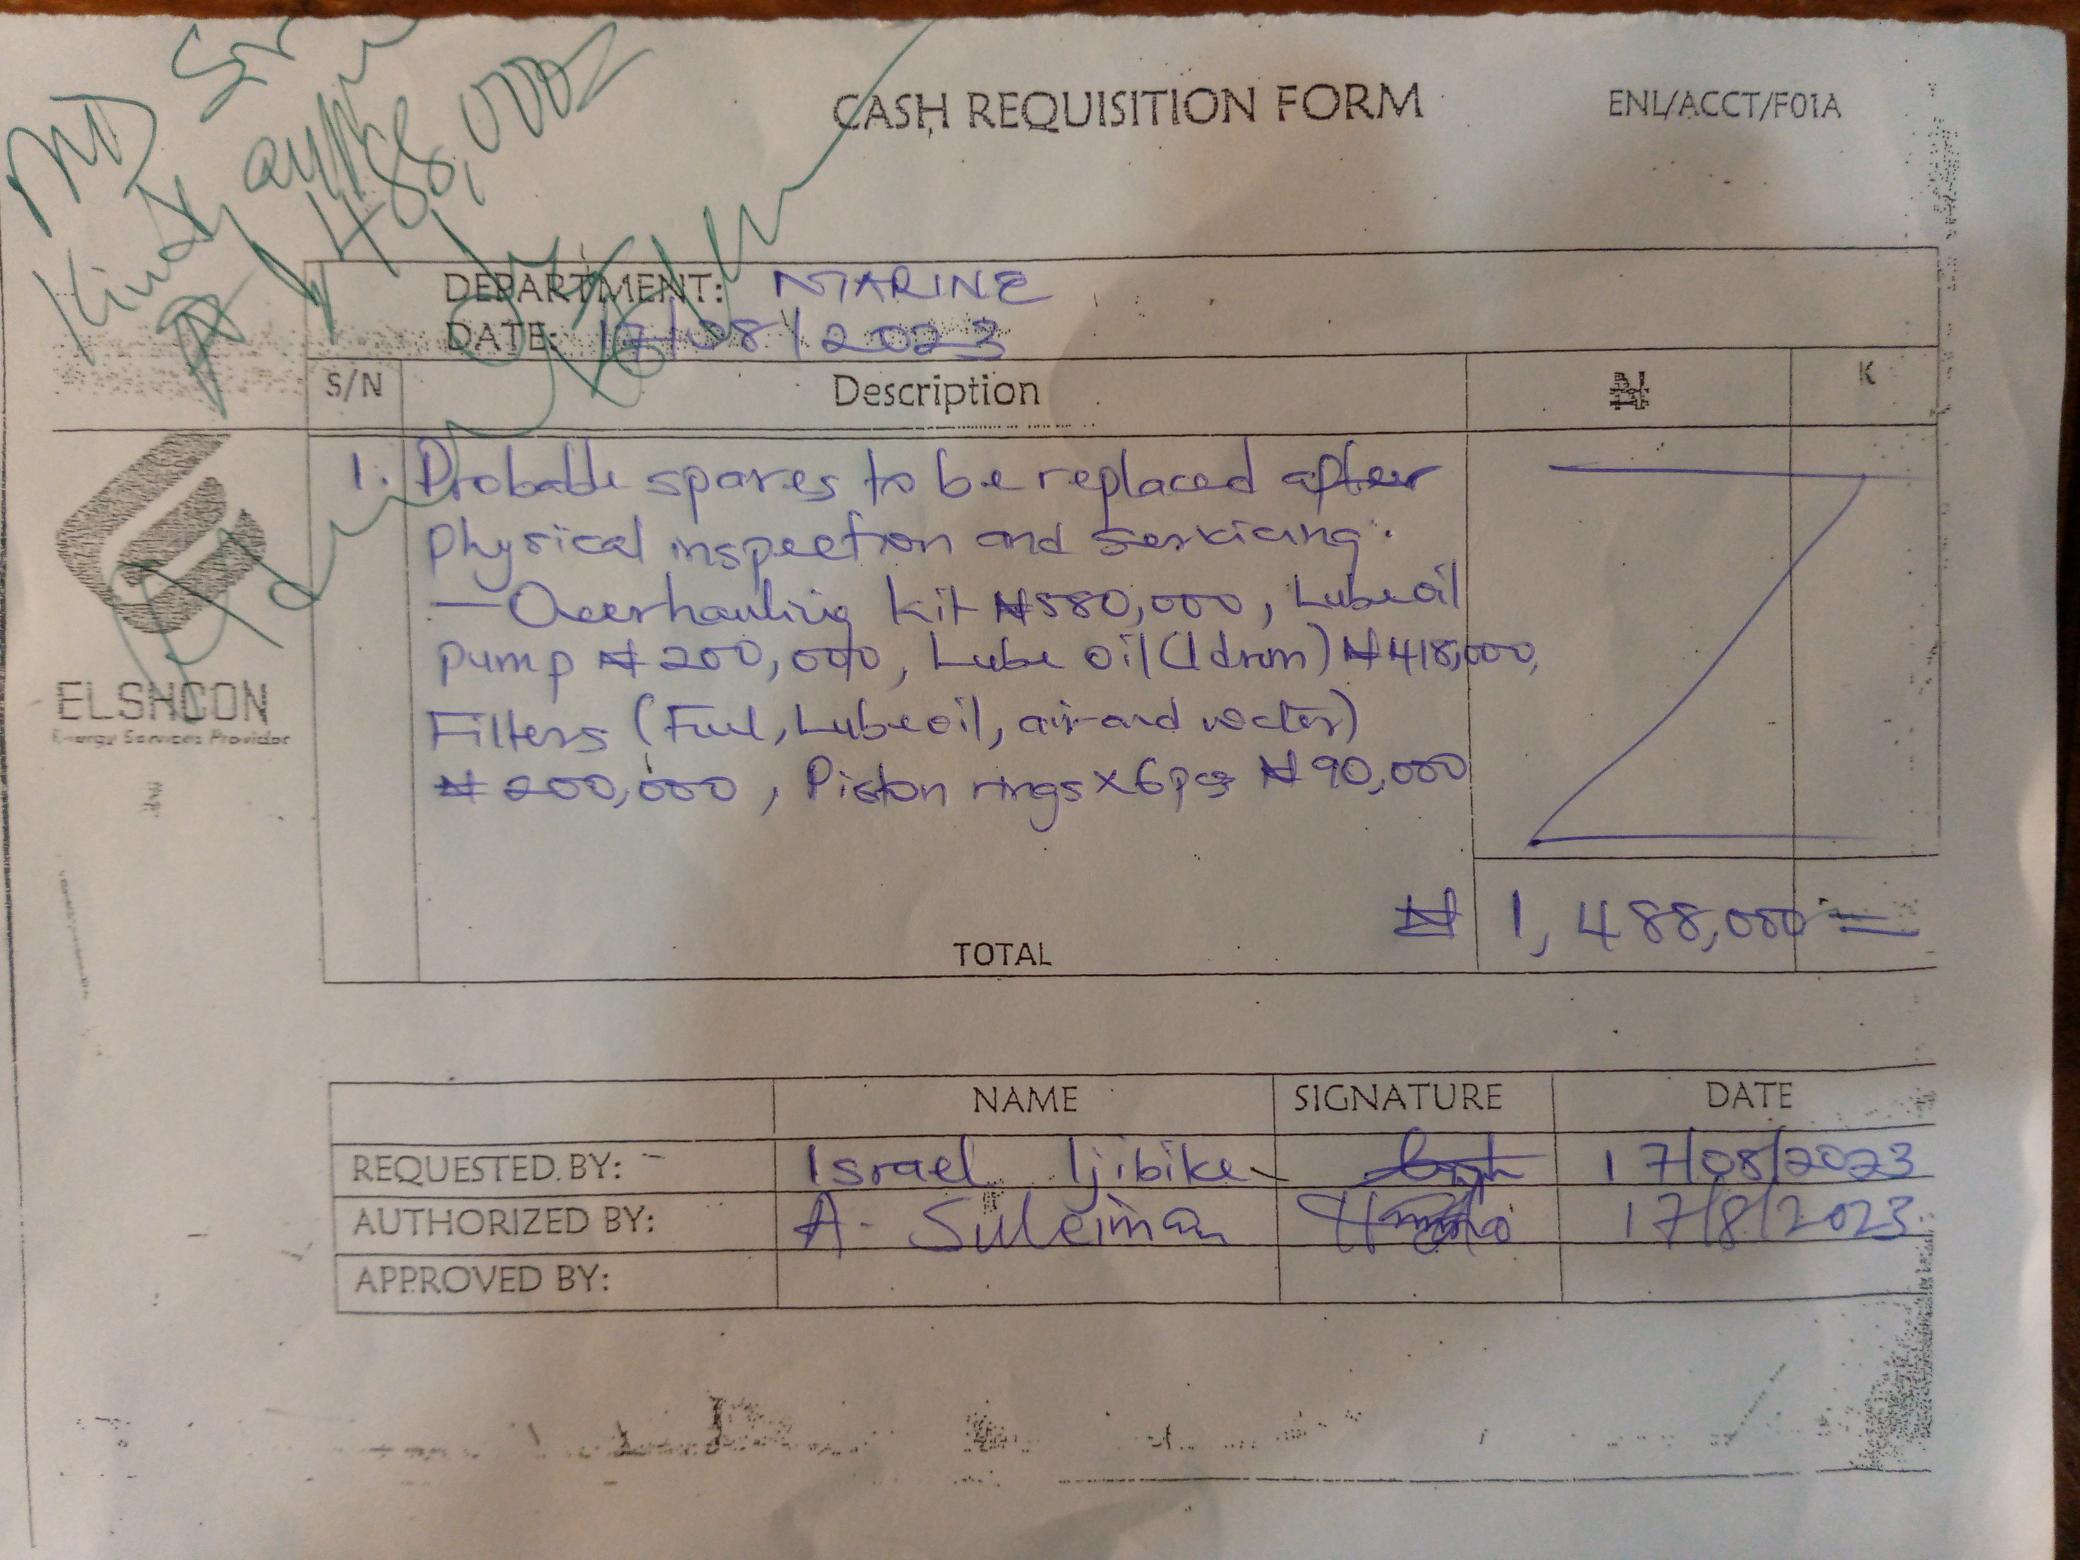 MD Sir
Kindly
₦1,488,000
CASH REQUISITION FORM
ENL/ACCT/F01A
DEPARTMENT: MARINE
DATE: 17/08/2023
S/N Description ₦ K
1. Probable spares to be replaced after
physical inspection and servicing.
— Overhauling kit ₦580,000, Lube oil
pump ₦200,000, Lube oil (1 drum) ₦418,000,
Filters (Fuel, Lube oil, air and water)
₦200,000, Piston rings x 6pcs ₦90,000
TOTAL ₦ 1,488,000 =
ELSHCON
Energy Services Provider
NAME SIGNATURE DATE
REQUESTED BY: Israel Ijibike 17/08/2023
AUTHORIZED BY: A. Suleiman 17/8/2023
APPROVED BY: